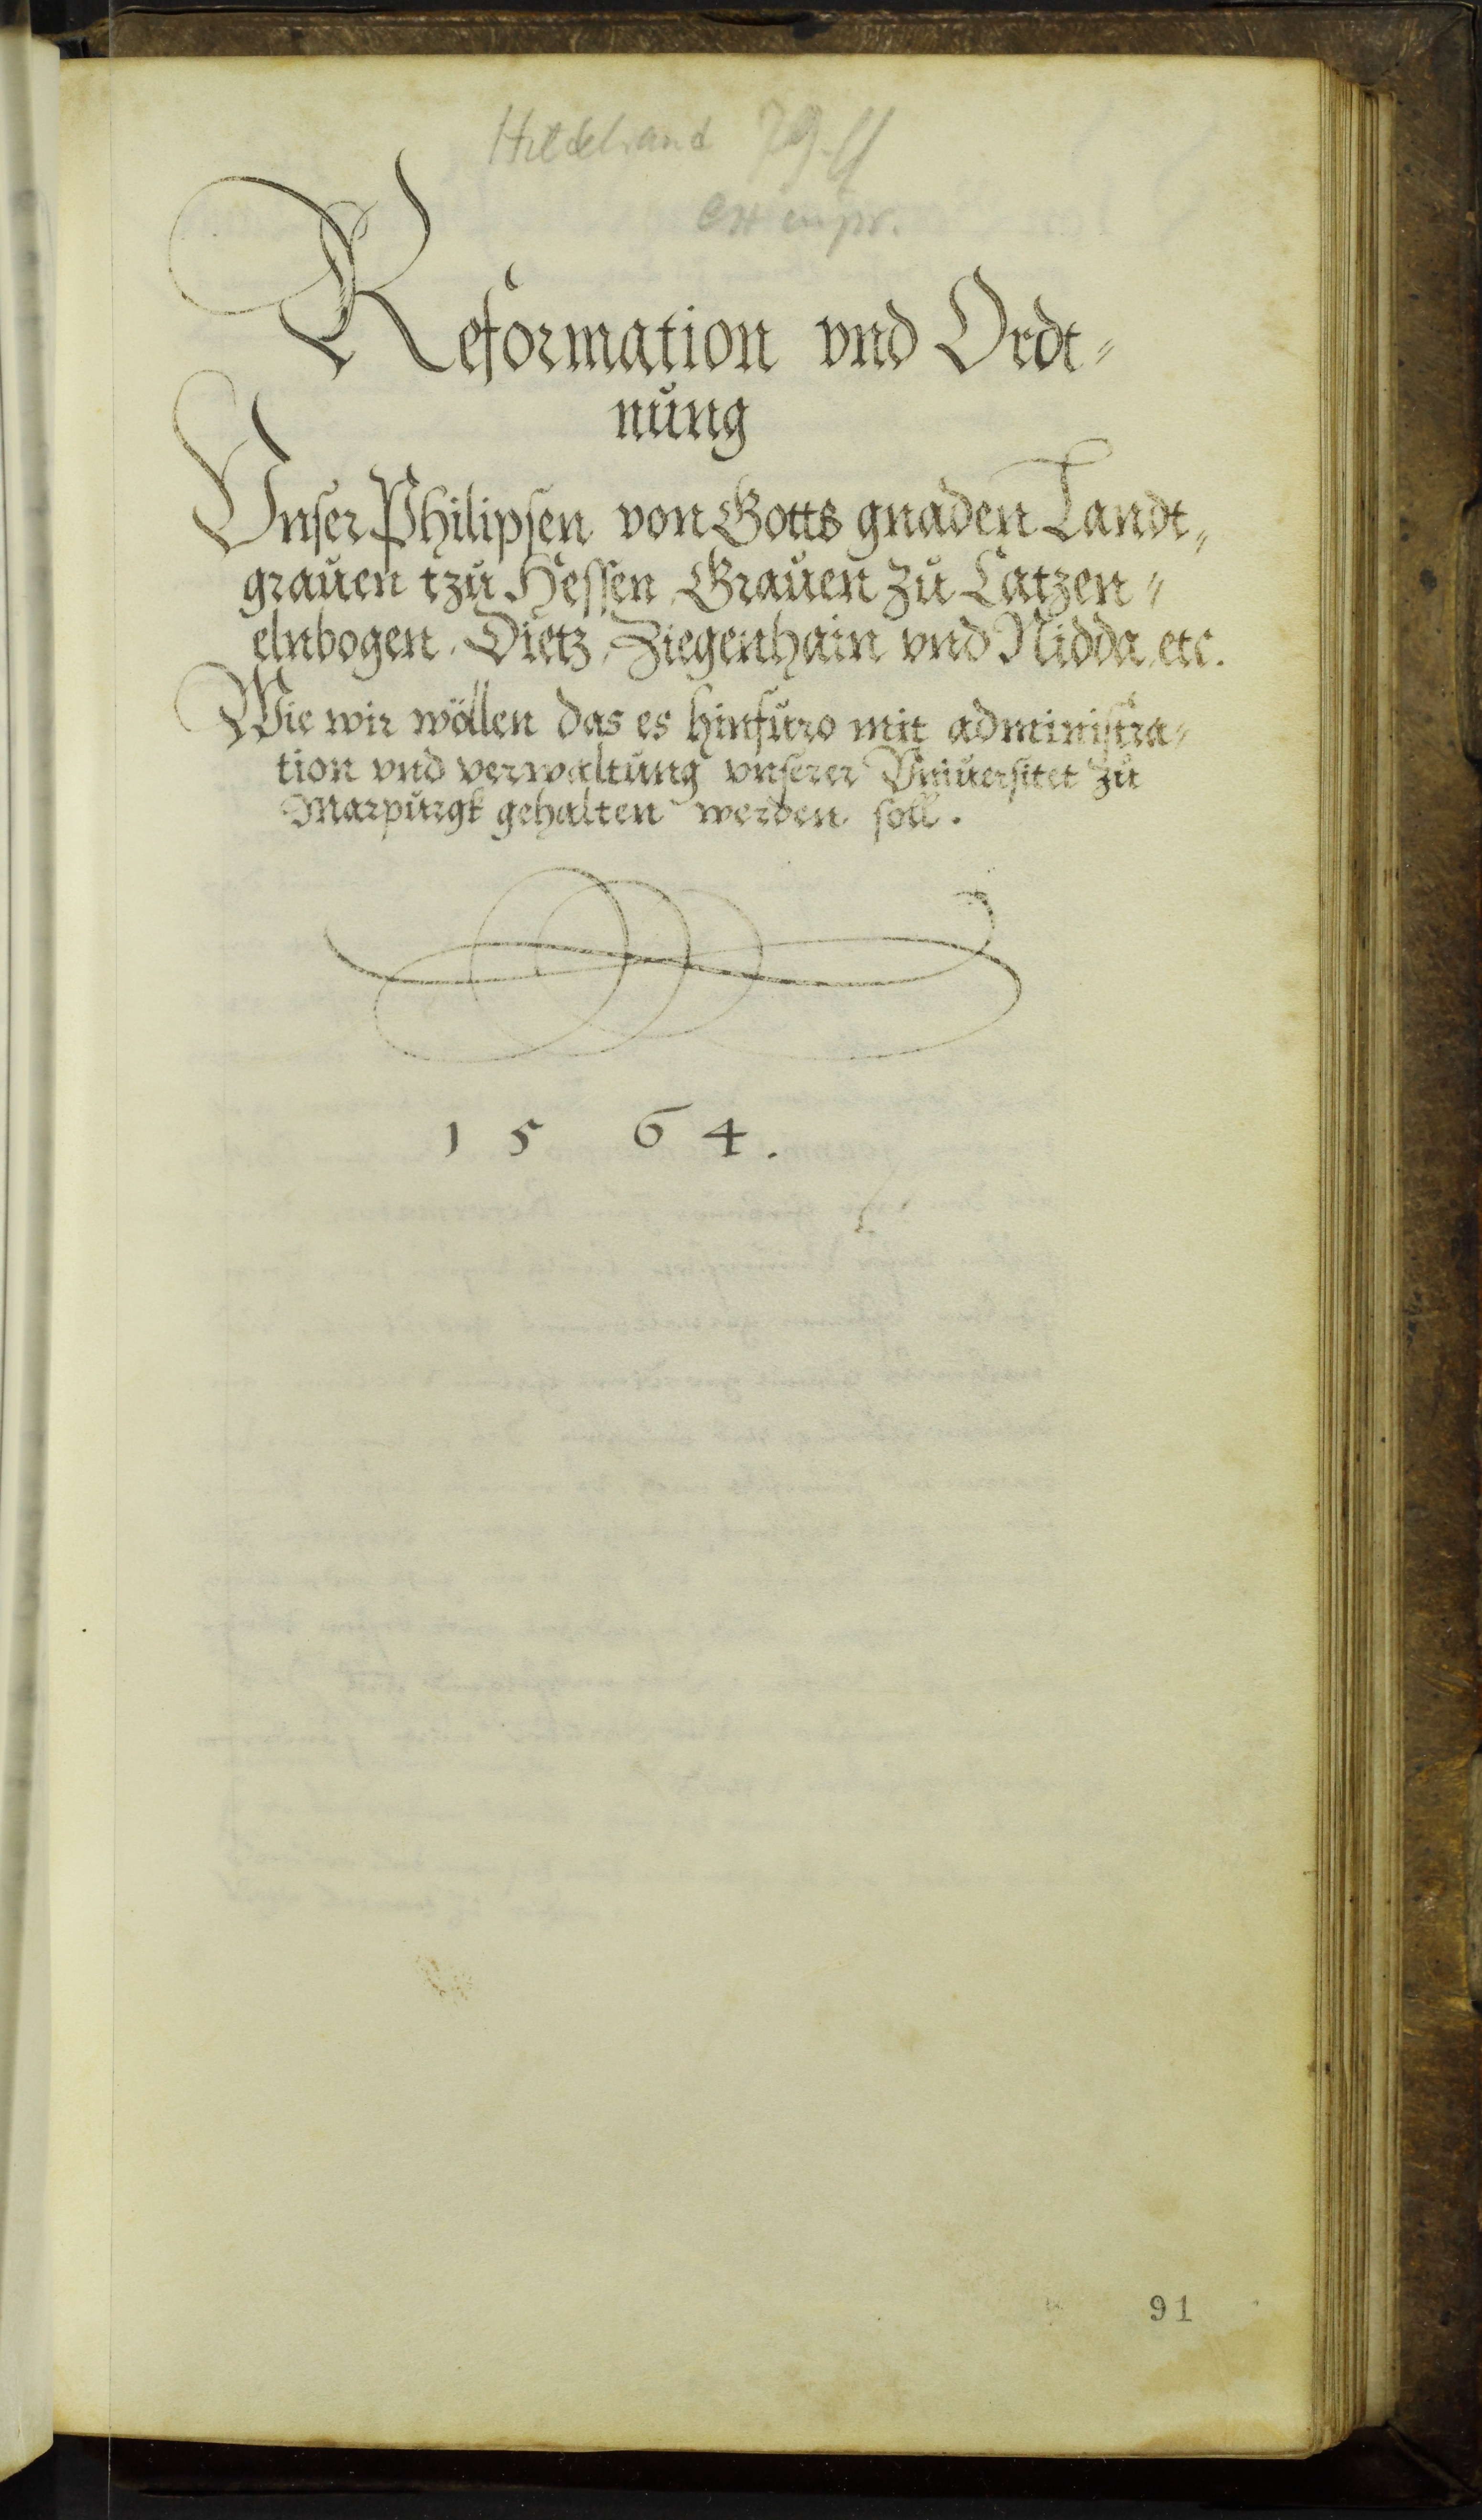 Hildebrand 79 ff
Reformation vnd Ordt-
nung
Vnser Philipsen von Gotts gnaden Landt-
grauen tzu Hessen, Grauen zu Catzen-
elnbogen, Dietz, Ziegenhain vnd Nidda, etc.
Wie wir wöllen das es hinfuro mit administra-
tion vnd verwaltung vnserer Vniuersitet zu
Marpurgk gehalten werden soll.
1 5 6 4.
91